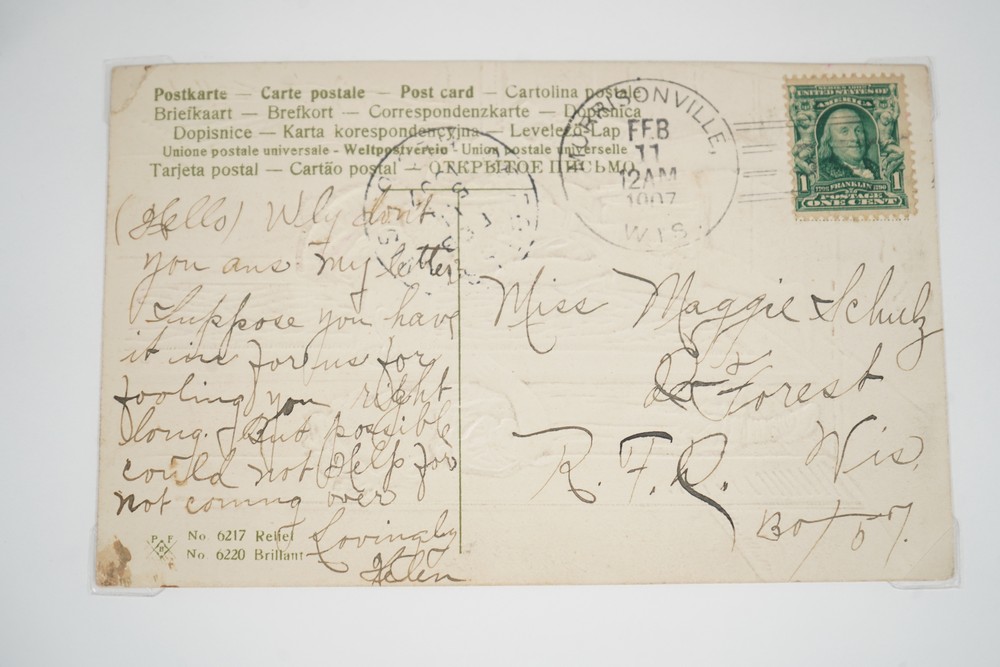 Postkarte — Carte postale — Post card — Cartolina postale
Briefkaart — Brefkort — Correspondenzkarte — Dopisnica
Dopisnice — Karta korespondencyjna — Levelező-Lap
Unione postale universale - Weltpostverein - Union postale universelle
Tarjeta postal — Cartão postal — ОТКРЫТОЕ ПИСЬМО
MORRISONVILLE,
FEB
11
12AM
1907
WIS.
SERIES 1902
UNITED STATES OF
AMERICA
1 FRANKLIN 1
POSTAGE
ONE CENT
(Hello) Why don't
you ans. my letter
Suppose you have
it in for us for
fooling you right
long. But possible
could not help for
not coming over
Lovingly
Helen
Miss Maggie Schulz
De Forest
Wis.
R. F. D.
Box 57.
P F
B
No 6217 Relief
No. 6220 Brillant